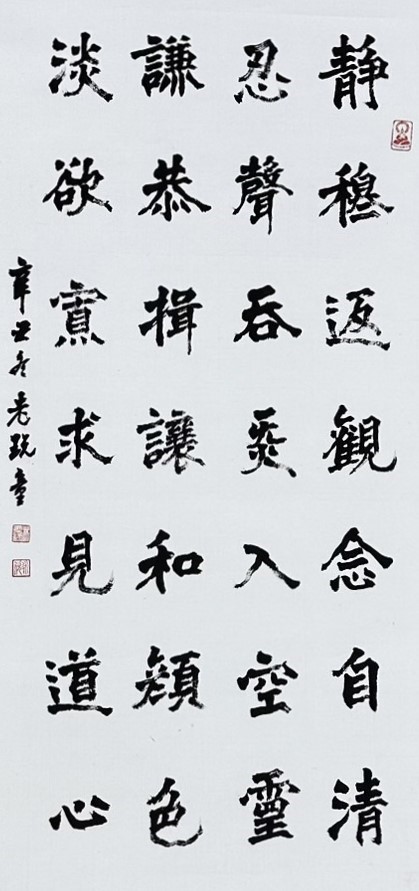 靜穆返觀念自清
忍聲吞炁入空靈
謙恭揖讓和顏色
淡欲寡求見道心
辛丑冬老頑童